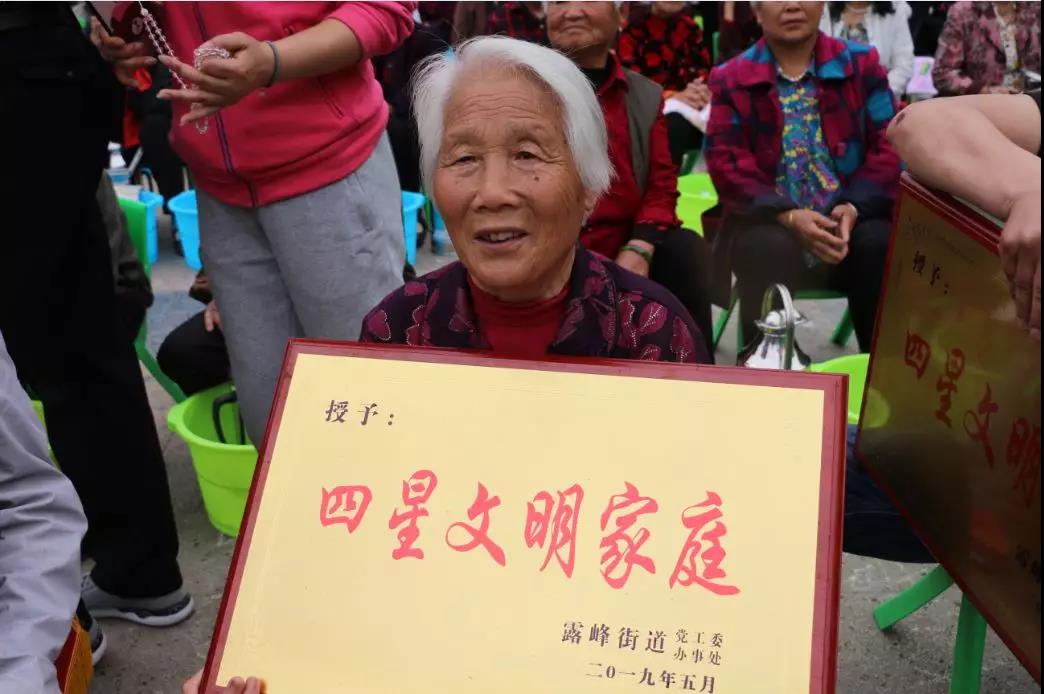 授予：
四星文明家庭
露峰街道 党工委
办事处
二0一九年五月
授予：
四星文明
露